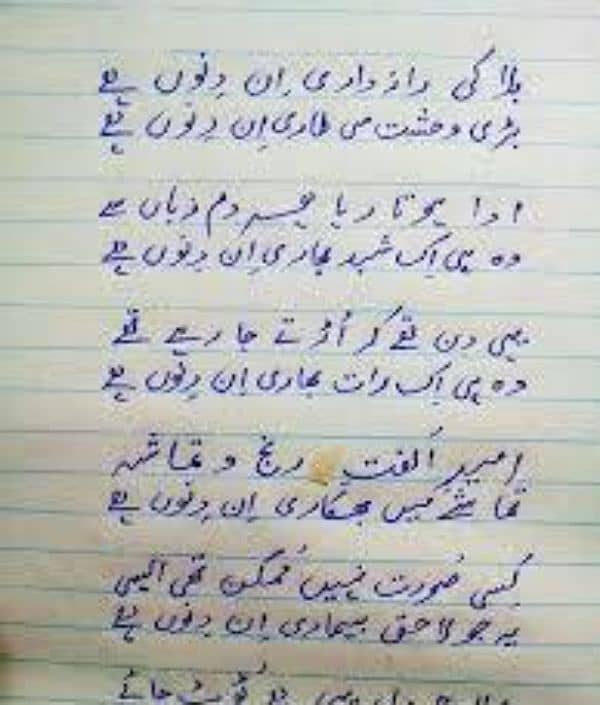 بلا کی رازداری اِن دِنوں ہے
بڑی وحشت سی طاری اِن دِنوں ہے
ادا ہوتا رہا جو دم زباں سے
وہ ہی اِک شبد بھاری اِن دِنوں ہے
یہی دن تھے کہ اُڑتے جا رہے تھے
وہ ہی اِک رات بھاری اِن دِنوں ہے
اُلفت رنج و تماشہ
تماشے میں بھکاری اِن دِنوں ہے
کِسی صُورت نہیں مُمکن تھی ایسی
یہ جو لاحق بیماری اِن دِنوں ہے